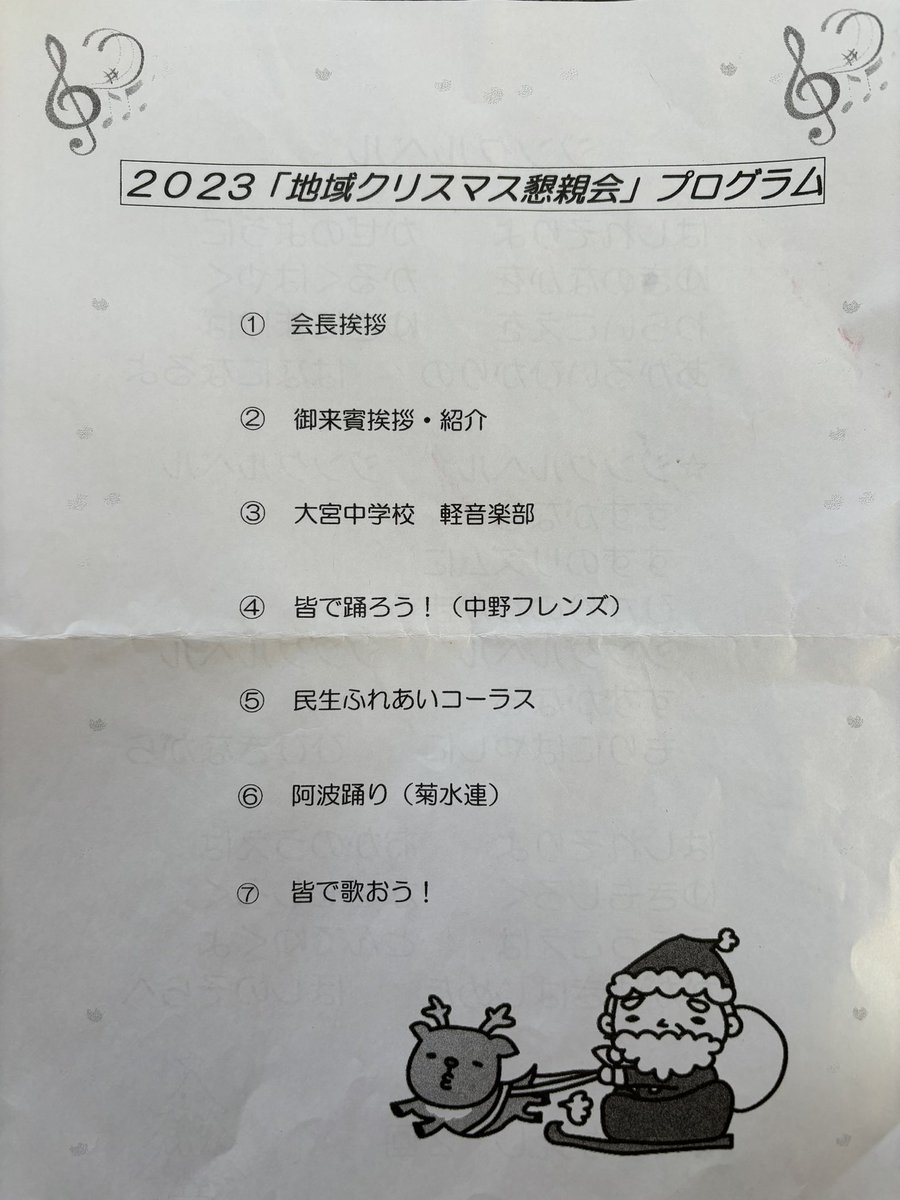 2023「地域クリスマス懇親会」プログラム
① 会長挨拶
② 御来賓挨拶・紹介
③ 大宮中学校　軽音楽部
④ 皆で踊ろう！（中野フレンズ）
⑤ 民生ふれあいコーラス
⑥ 阿波踊り（菊水連）
⑦ 皆で歌おう！